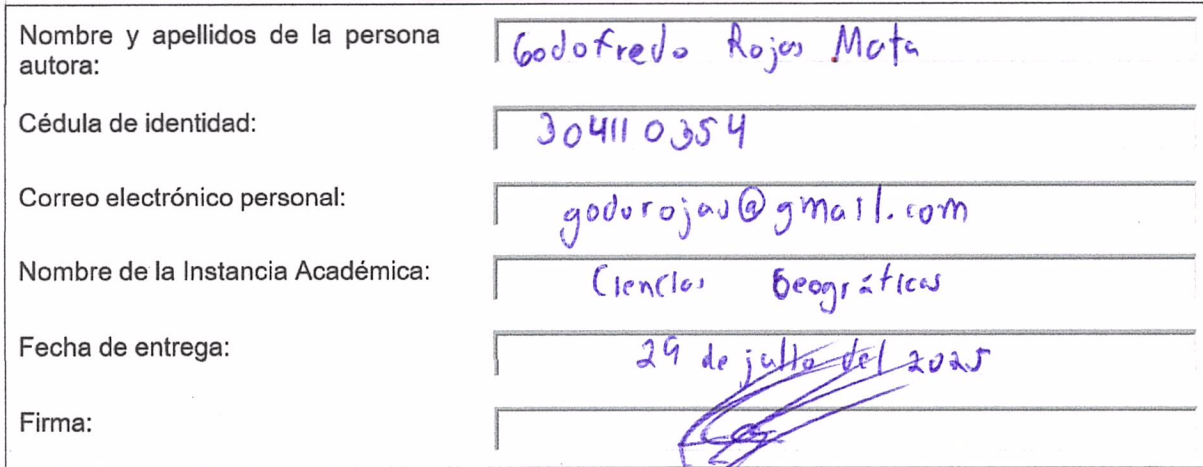 Nombre y apellidos de la persona
autora:
Godofredo Rojas Mata
Cédula de identidad:
304110354
Correo electrónico personal:
godorojas@gmail.com
Nombre de la Instancia Académica:
Ciencias Geográficas
Fecha de entrega:
29 de julio del 2025
Firma: